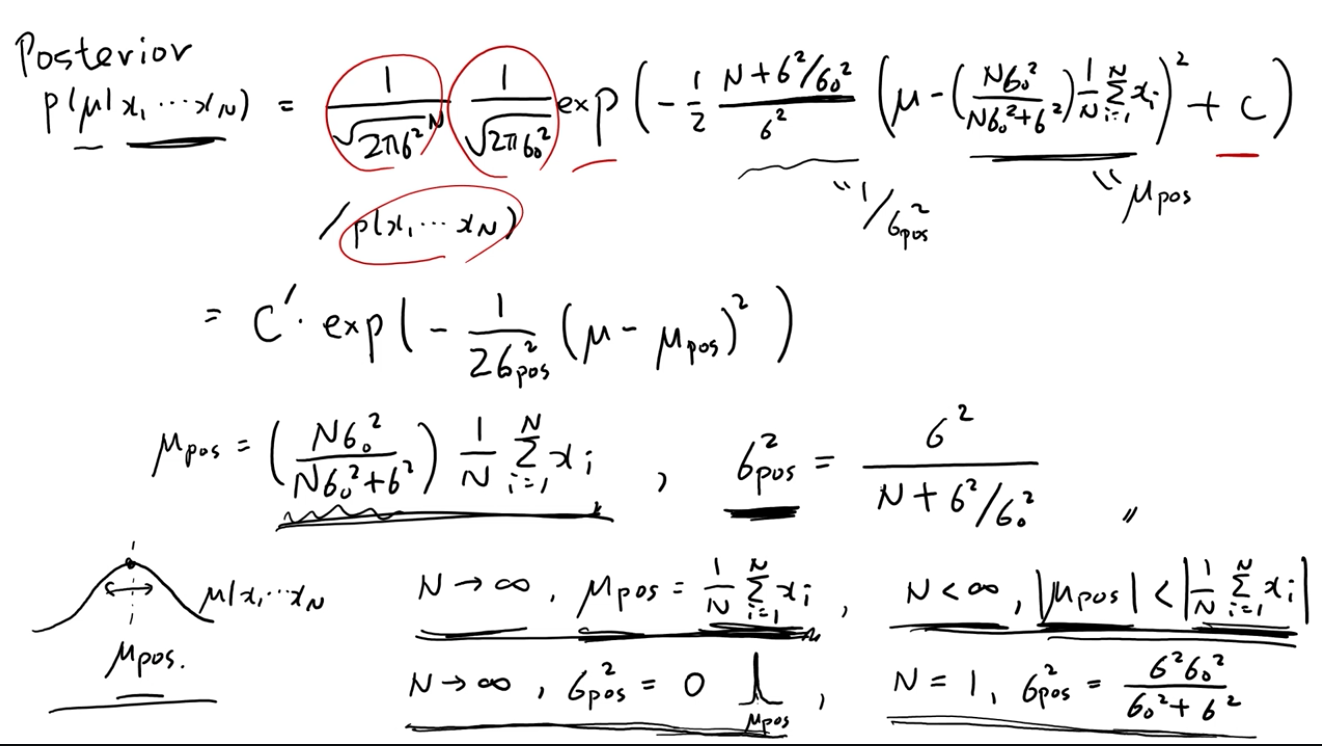 Posterior
p(μ|x₁ ⋯ x_N) = 1/√(2πσ²)^N 1/√(2πσ₀²) exp(-1/2 (N+σ²/σ₀²)/σ² (μ-(Nσ₀²/(Nσ₀²+σ²)) 1/N Σ_{i=1}^{N} x_i)² + C)
/p(x₁ ⋯ x_N) " 1/σ²_pos " μ_pos
= C′· exp(-1/(2σ²_pos) (μ - μ_pos)²)
μ_pos = (Nσ₀²/(Nσ₀²+σ²)) 1/N Σ_{i=1}^{N} x_i , σ²_pos = σ²/(N+σ²/σ₀²) 〃
μ|x₁⋯x_N
μ_pos.
N→∞, μ_pos = 1/N Σ_{i=1}^{N} x_i , N<∞, |μ_pos| < |1/N Σ_{i=1}^{N} x_i|
N→∞, σ²_pos = 0 μ_pos , N = 1, σ²_pos = σ²σ₀²/(σ₀²+σ²)